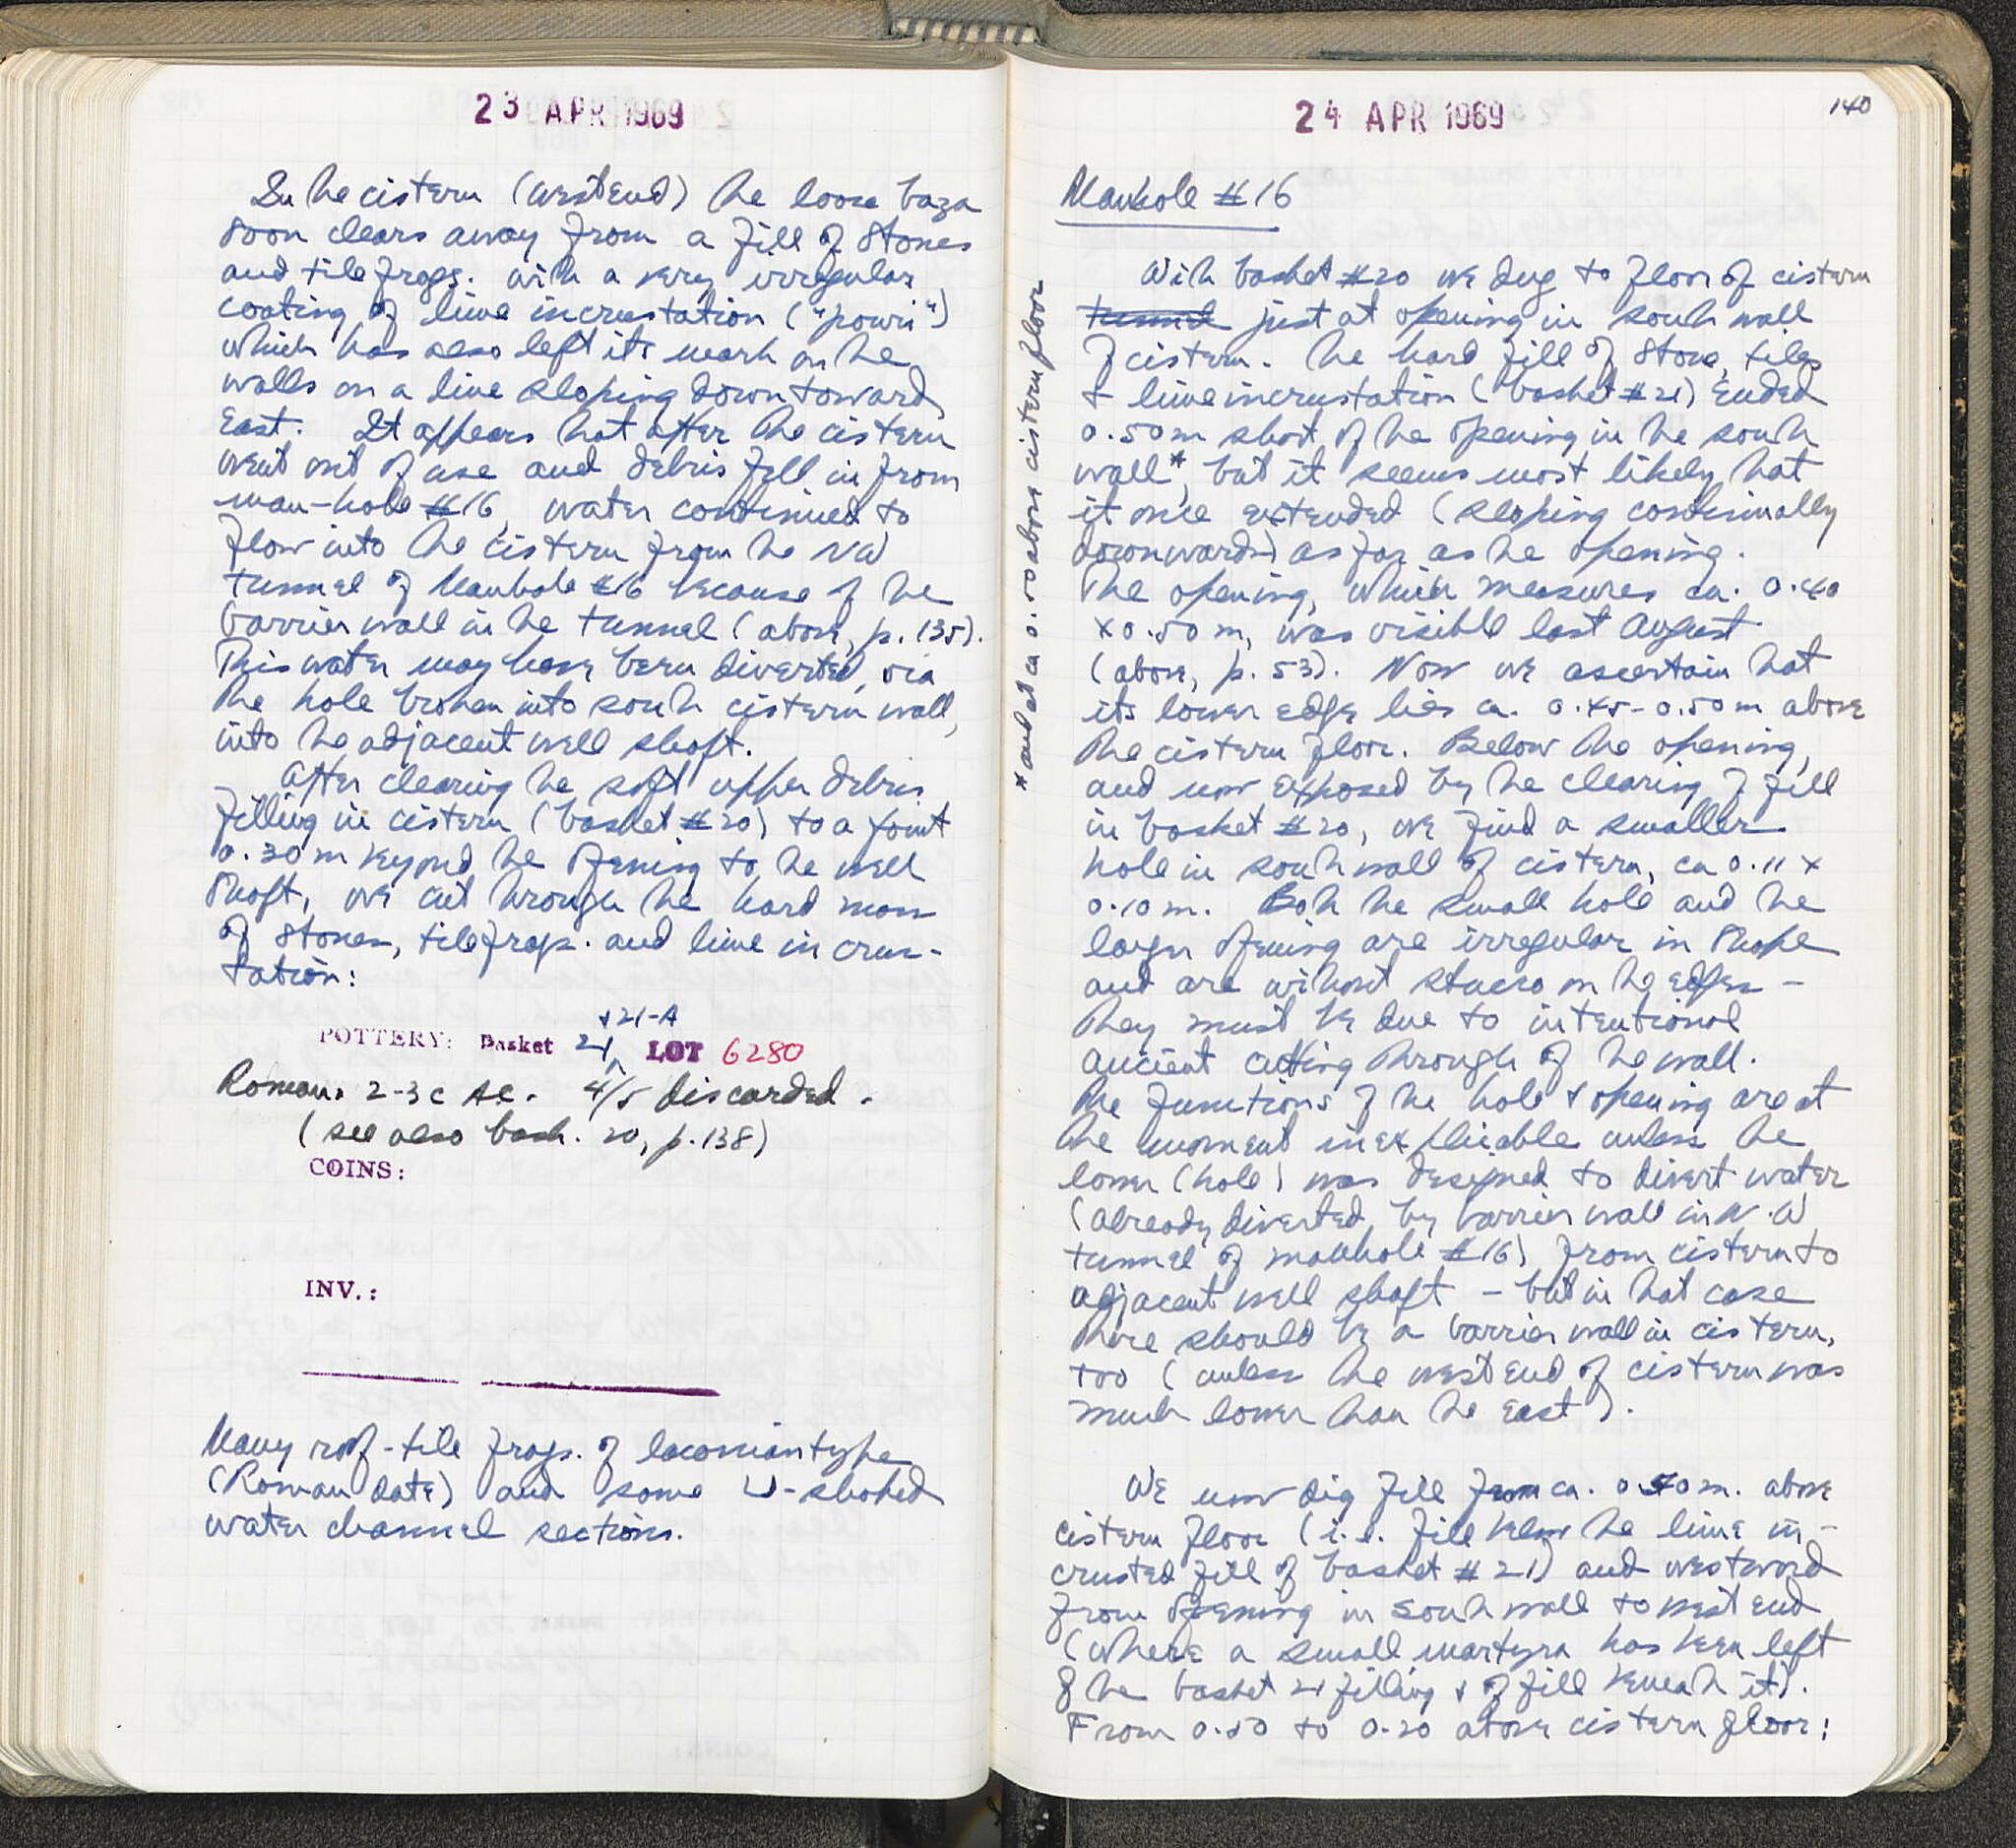 23 APR 1969
In the cistern (west end) the loose baza
soon clears away from a fill of stones
and tile frags. with a very irregular
coating of lime incrustation ("powri")
which has also left its mark on the
walls on a line sloping down toward
East. It appears that after the cistern
went out of use and debris fell in from
man-hole #16, water continued to
flow into the cistern from the NW
tunnel of Manhole #16 because of the
barrier wall in the tunnel (above, p. 135).
This water may have been diverted, via
the hole broken into south cistern wall,
into the adjacent well shaft.
After clearing the soft upper debris
filling in cistern (basket #20) to a point
0.30 m beyond the opening to the well
shaft, we cut through the hard mass
of stones, tile frags. and lime incrus-
tation:
POTTERY: Basket 21 + 21-A LOT 6280
Roman. 2-3 c AC. 4/5 discarded.
(see also bask. 20, p. 138)
COINS:
INV.:
Many roof-tile frags. of laconian type
(Roman date) and some U-shaped
water channel sections.
24 APR 1969
140
Manhole #16
With basket #20 we dug to floor of cistern
tunnel just at opening in south wall
of cistern. The hard fill of stone, tiles
+ lime incrustation (basket #21) ended
0.50 m short of the opening in the south
wall*, but it seems most likely that
it once extended (sloping continually
downwards) as far as the opening.
The opening, which measures ca. 0.40
x 0.50 m, was visible last August
(above, p. 53). Now we ascertain that
its lower edge lies ca. 0.45-0.50 m above
the cistern floor. Below the opening,
and now exposed by the clearing of fill
in basket #20, we find a smaller
hole in south wall of cistern, ca 0.11 x
0.10 m. Both the small hole and the
larger opening are irregular in shape
and are without stucco on the edges -
They must be due to intentional
ancient cutting through of the wall.
The functions of the hole + opening are at
the moment inexplicable unless the
lower (hole) was designed to divert water
(already diverted by barrier wall in N.W
tunnel of manhole #16) from cistern to
adjacent well shaft - but in that case
there should be a barrier wall in cistern,
too (unless the west end of cistern was
much lower than the east).
We now dig fill from ca. 0.50 m. above
cistern floor (i.e. fill below the lime in-
crusted fill of basket #21) and westward
from opening in south wall to west end
(where a small martyra has been left
of the basket 21 filling + of fill beneath it).
From 0.50 to 0.20 above cistern floor:
* and at ca 0.50 above cistern floor